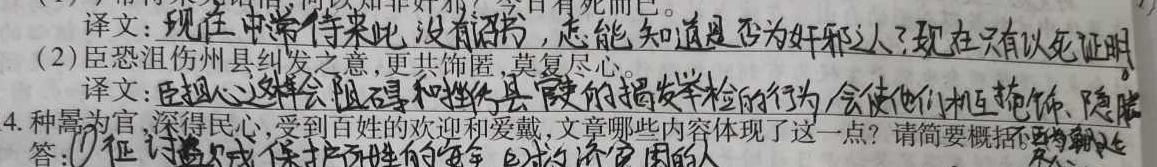 今日有死而已。
译文：现在中常侍来此，没有诏书，怎能知道是否为奸邪之人？现在只有以死证明。
（2）臣恐沮伤州县纠发之意，更共饰匿，莫复尽心。
译文：臣担心这样会阻碍和挫伤县官吏的揭发举检的行为，会使他们相互掩饰、隐瞒
4. 种暠为官，深得民心，受到百姓的欢迎和爱戴，文章哪些内容体现了这一点？请简要概括
答：①征讨 保护百姓的安全